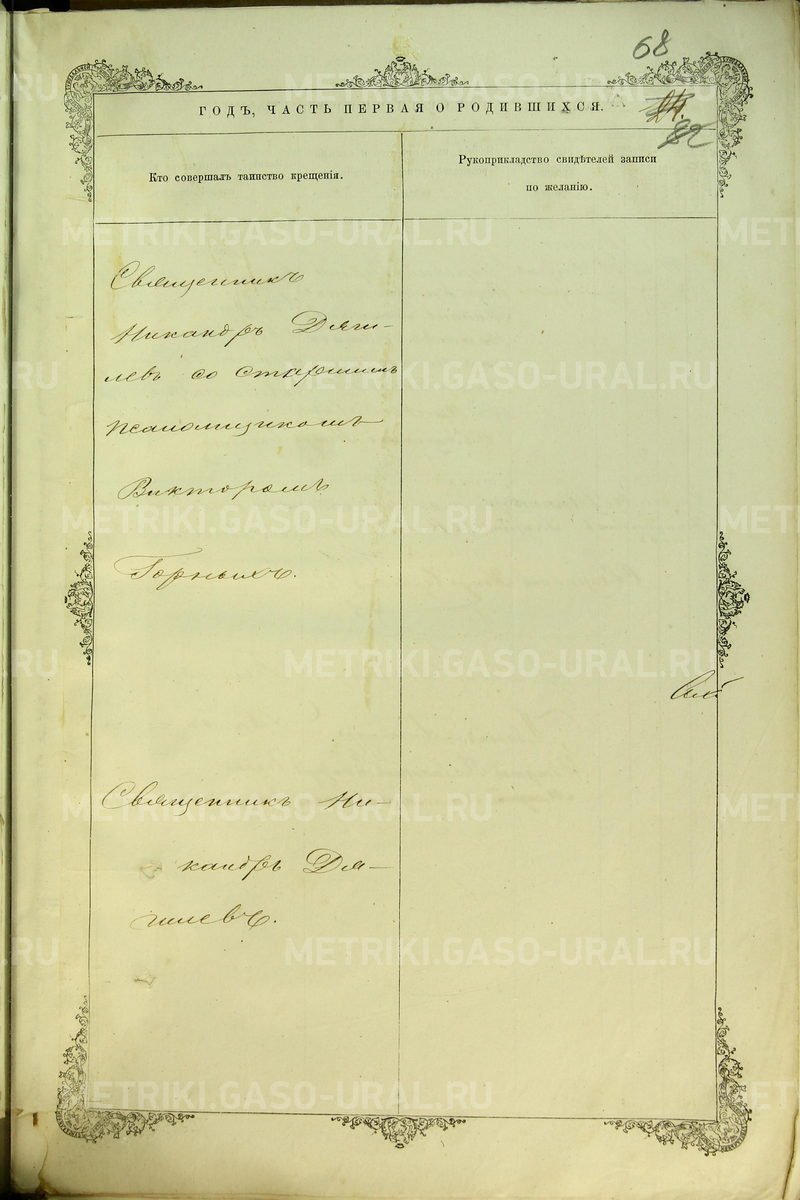 68
ГОДЪ, ЧАСТЬ ПЕРВАЯ О РОДИВШИХСЯ.
82
Кто совершалъ таинство крещенія.
Рукоприкладство свидѣтелей записи
по желанію.
Священникъ
Никандръ Дяги-
левъ со старшимъ
псаломщикомъ
Викторомъ
Горныхъ.
Священникъ Ни-
кандръ Дя-
гилевъ.
METRIKI.GASO-URAL.RU